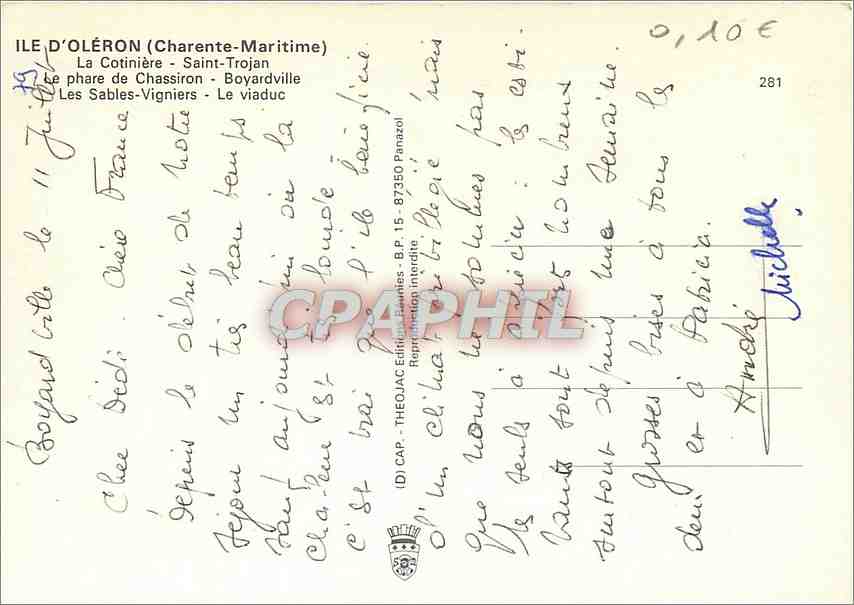 ILE D'OLÉRON (Charente-Maritime)
La Cotinière - Saint-Trojan
Le phare de Chassiron - Boyardville
Les Sables-Vigniers - Le viaduc
0,10 €
281
Boyardville le 11 Juillet 79
Cher Dédi. Chère France
Depuis le début de notre
séjour un très beau temps
sauf aujourd'hui où la
chaleur est très lourde
c'est vrai que l'ile bénéficie
d'un climat privilégié mais
que nous ne sommes pas
les seuls à apprécier : les esti-
vants sont fort nombreux
surtout depuis une semaine.
Grosses bises à tous les
deux et à Patricia.
André
Michelle
(D) CAP. - THEOJAC Editions Réunies - B.P. 15 - 87350 Panazol
Reproduction interdite
CPAPHIL